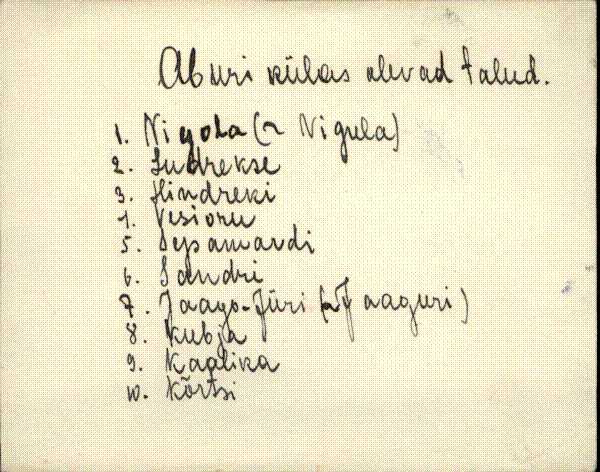 Aburi külas olevad talud.
1. Nigola (~ Nigula)
2. Indrekse
3. Hindreki
4. Vesioru
5. Sepamardi
6. Sandri
7. Jaago-Jüri (~ Jaaguri)
8. Kubja
9. Kaalika
10. Kõrtsi